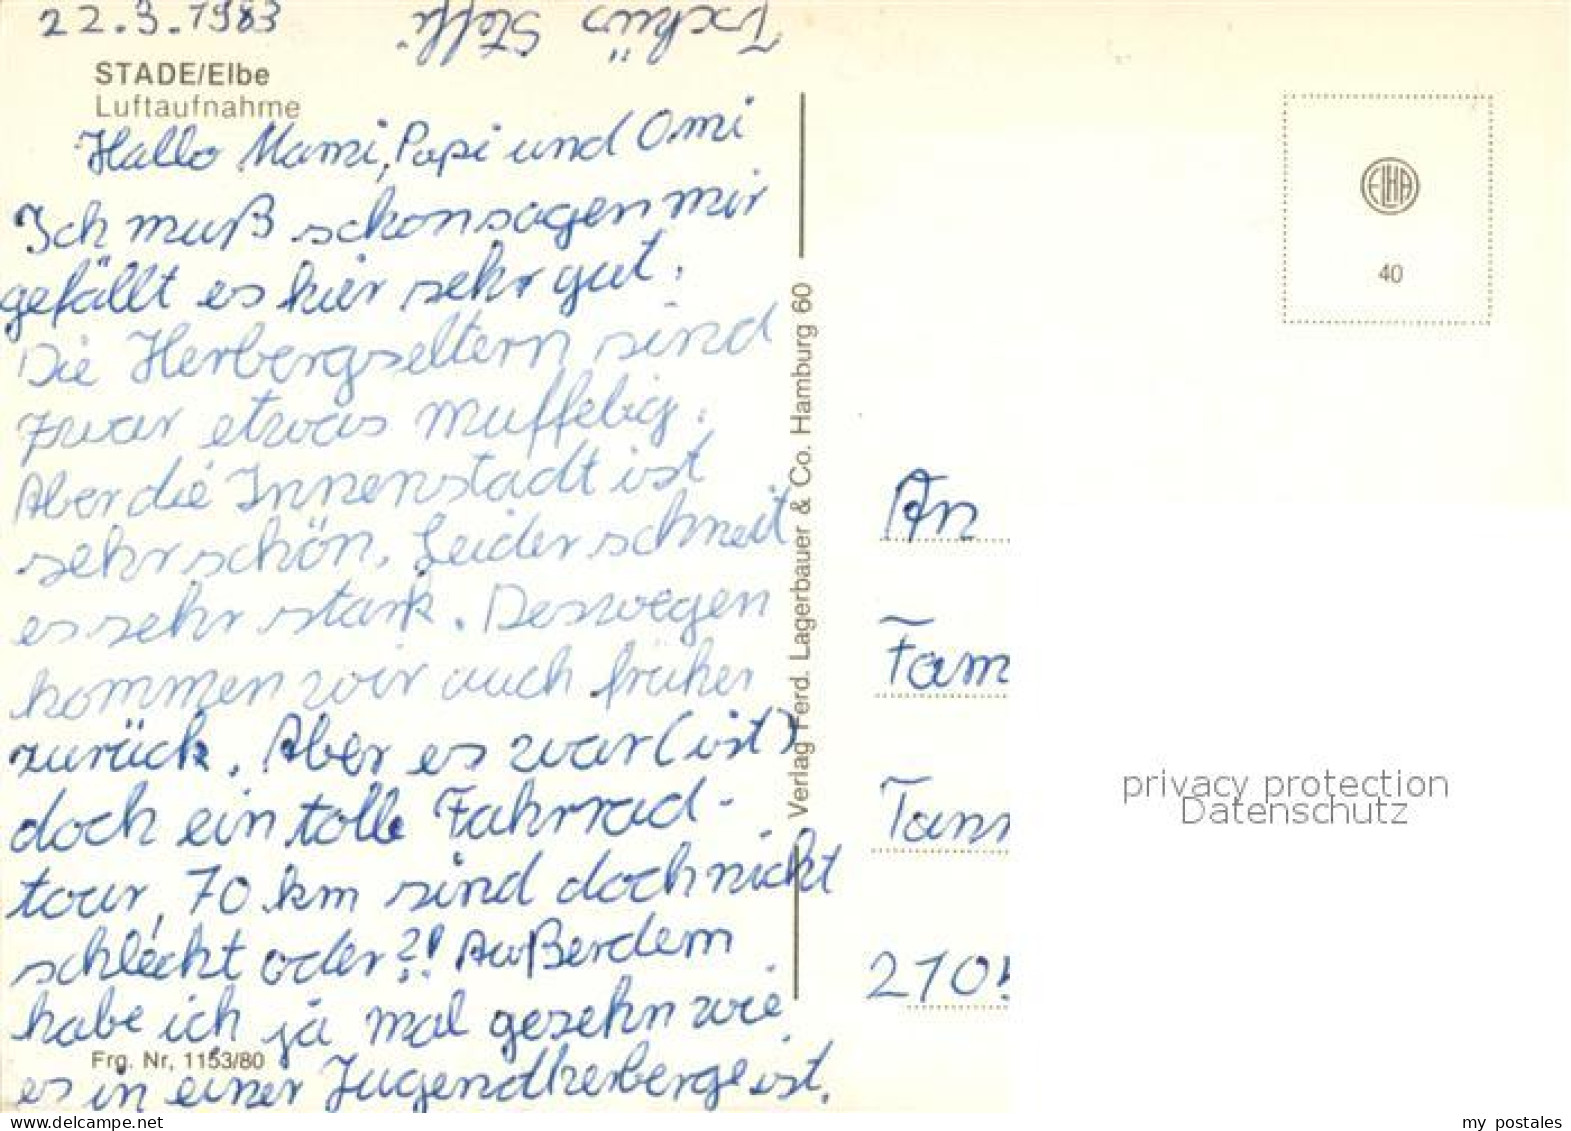 22.3.1983
Tschüs Steffi
STADE/Elbe
Luftaufnahme
Hallo Mami, Papi und Omi
Ich muß schon sagen mir
gefällt es hier sehr gut.
Die Herbergseltern sind
zwar etwas muffelig.
Aber die Innenstadt ist
sehr schön. Leider schneit
es sehr stark. Deswegen
kommen wir auch früher
zurück. Aber es war (ist)
doch ein tolle Fahrrad-
tour, 70 km sind doch nicht
schlecht oder?! Außerdem
habe ich ja mal gesehn wie
es in einer Jugendherberge ist.
Frg. Nr, 1153/80
Verlag Ferd. Lagerbauer & Co. Hamburg 60
ELHA
40
An
Fam
Tann
2105
privacy protection
Datenschutz
delcampe.net
my_postales